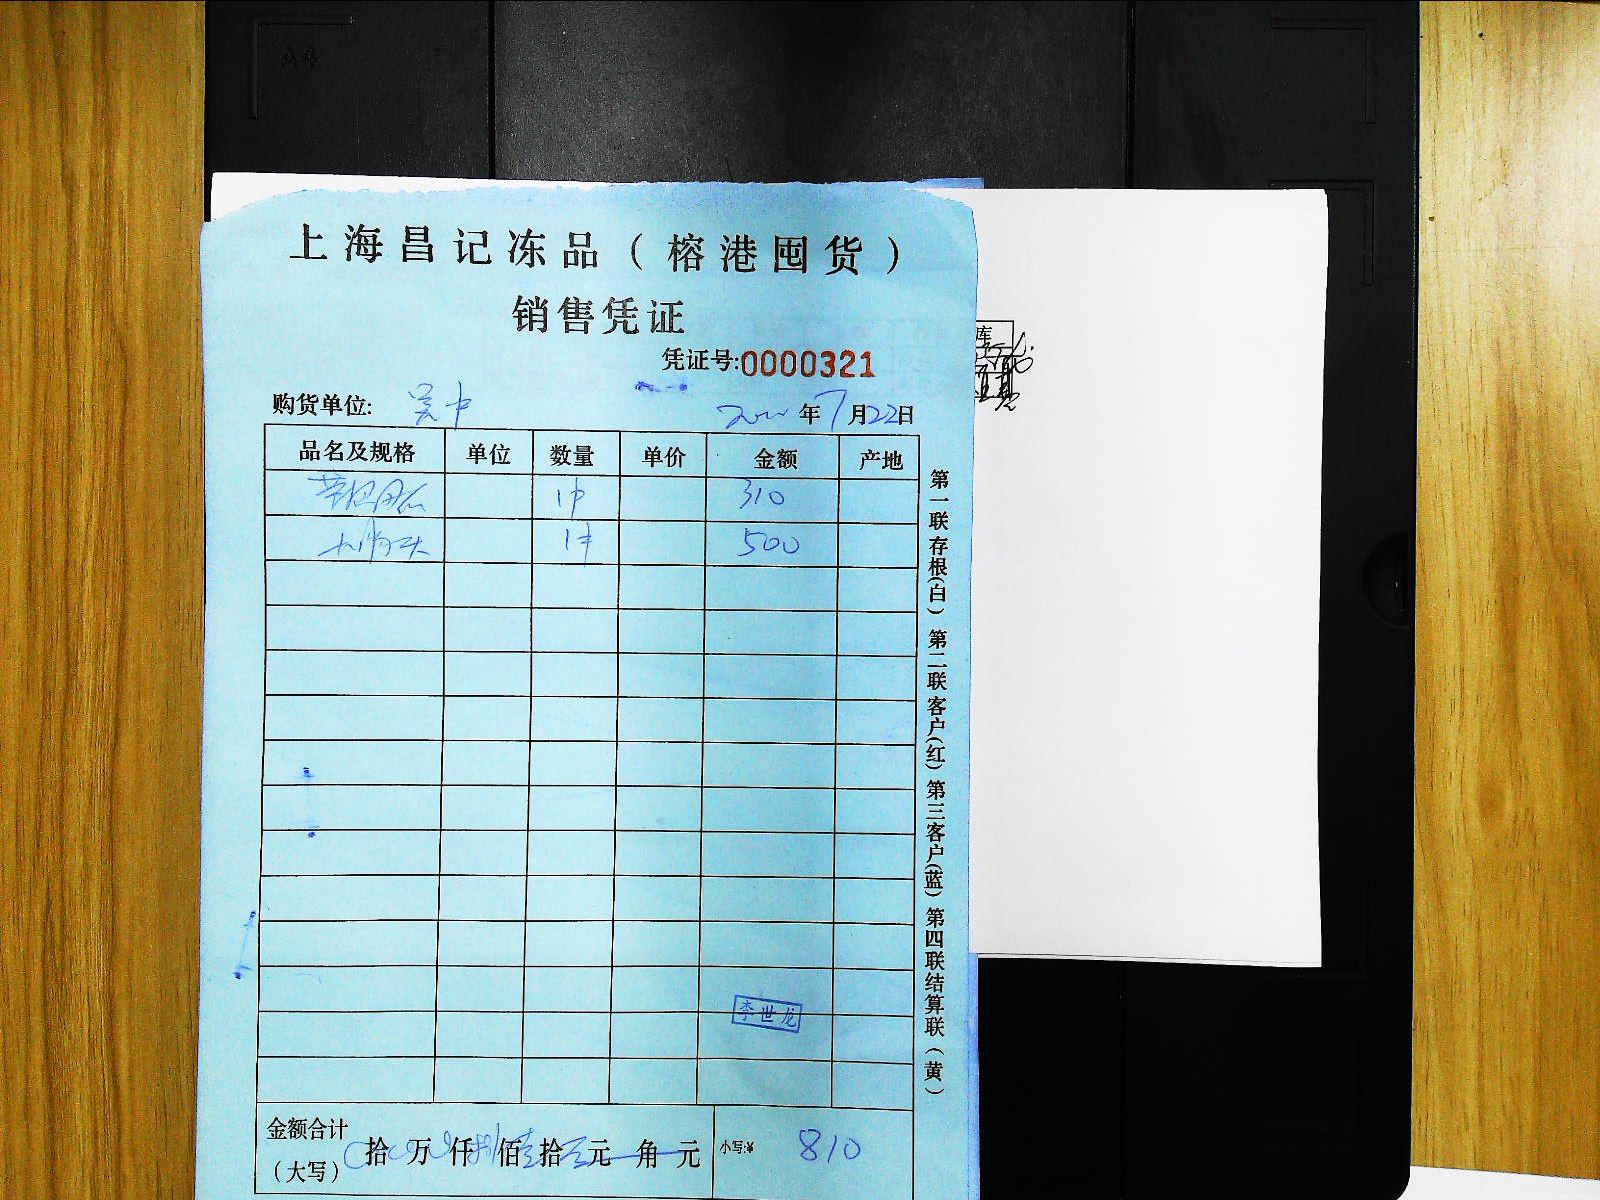 A4
上海昌记冻品（榕港囤货）
销售凭证
凭证号:0000321
购货单位: 吴中
年7月22日
品名及规格 单位 数量 单价 金额 产地
1件 310
1件 500
李世龙
金额合计（大写） 拾 万 仟 捌佰壹拾元 角 元 小写:¥ 810
第一联存根(白) 第二联客户(红) 第三客户(蓝) 第四联结算联(黄)
库